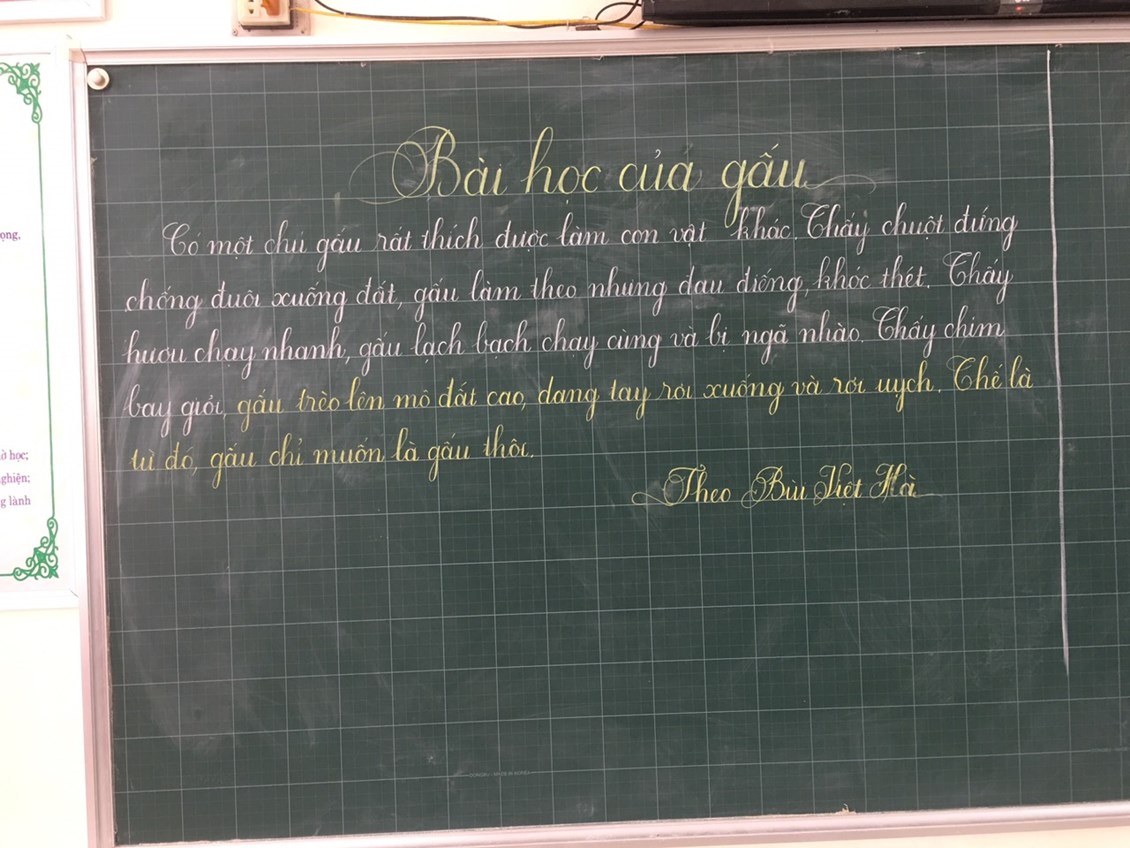 Bài học của gấu
Có một chú gấu rất thích được làm con vật khác. Thấy chuột đứng
chống đuôi xuống đất, gấu làm theo nhưng đau điếng, khóc thét. Thấy
hươu chạy nhanh, gấu lạch bạch chạy cùng và bị ngã nhào. Thấy chim
bay giỏi, gấu trèo lên mô đất cao, dang tay rơi xuống và rơi uỵch. Thế là
từ đó, gấu chỉ muốn là gấu thôi.
Theo Bùi Việt Hà
ọng,
ờ học;
nghiện;
g lành